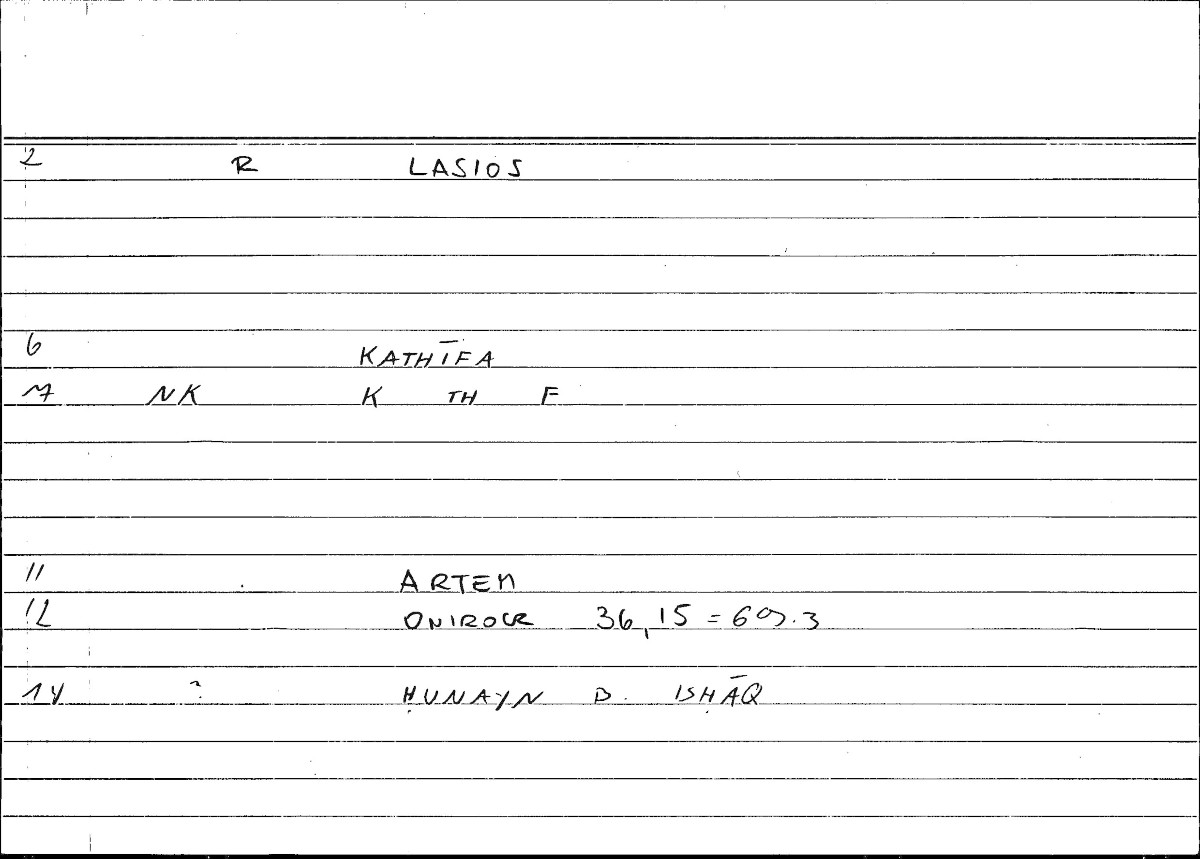 2 R LASIOS
6 KATHĪFA
7 NK K TH F
11 ARTEM
12 ONIROCR 36,15 = 69.3
14 ? ḤUNAYN B. ISḤĀQ